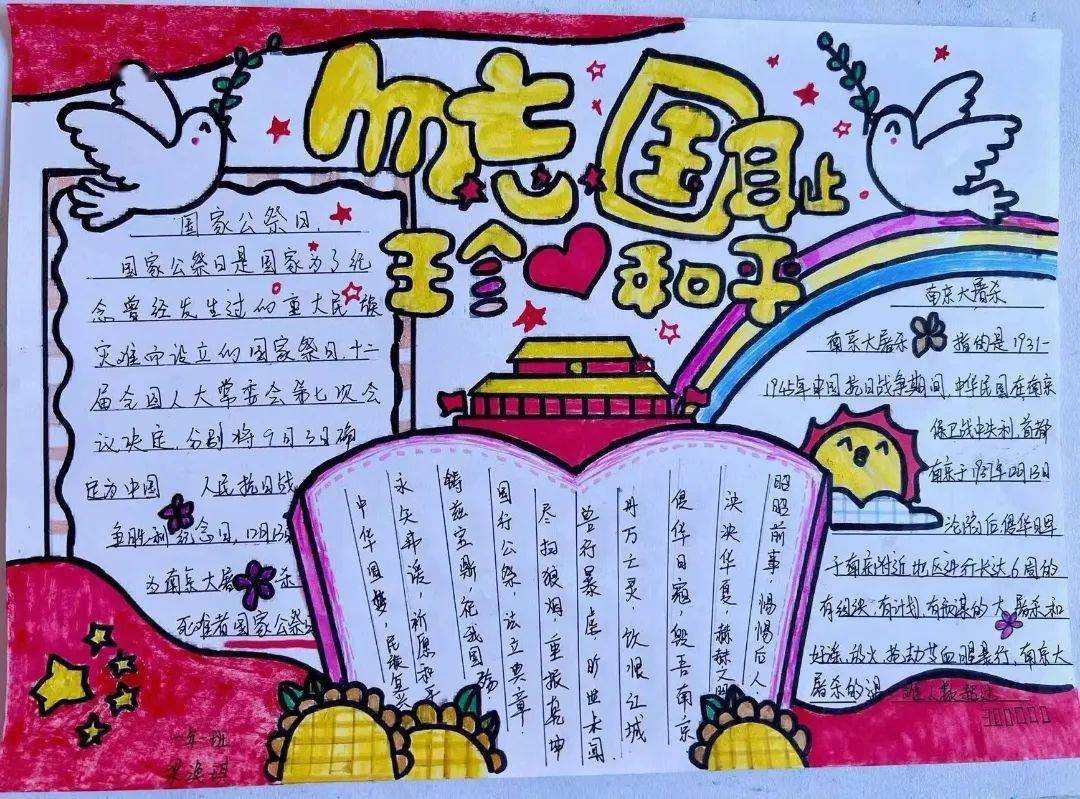 勿忘国耻
珍和平
国家公祭日
国家公祭日是国家为了纪
念曾经发生过的重大民族
灾难而设立的国家祭日.十二
届全国人大常委会第七次会
议决定.分别将9月3日确
定为中国 人民抗日战
争胜利纪念日,12月13日
为南京大屠杀
死难者国家公祭
昭昭前事,惕惕后人.
泱泱华夏,赫赫文明
侵华日寇 毁吾南京
卅万亡灵.饮恨江城
兽行暴虐 旷世未闻
尽扫狼烟.重振乾坤
国行公祭,法立典章.
铸兹宝鼎,祀我国殇
永矢弗谖,祈愿和平
中华圆梦,民族复兴
南京大屠杀
南京大屠杀 指的是1931-
1945年中国抗日战争期间,中华民国在南京
保卫战中失利,首都
南京于1937年12月13日
沦陷后,侵华日军
于南京附近地区进行长达6周的
有组织、有计划、有预谋的大屠杀和
奸淫、放火、抢劫等血腥暴行,南京大
屠杀的遇难人数超过
300000
一年一班